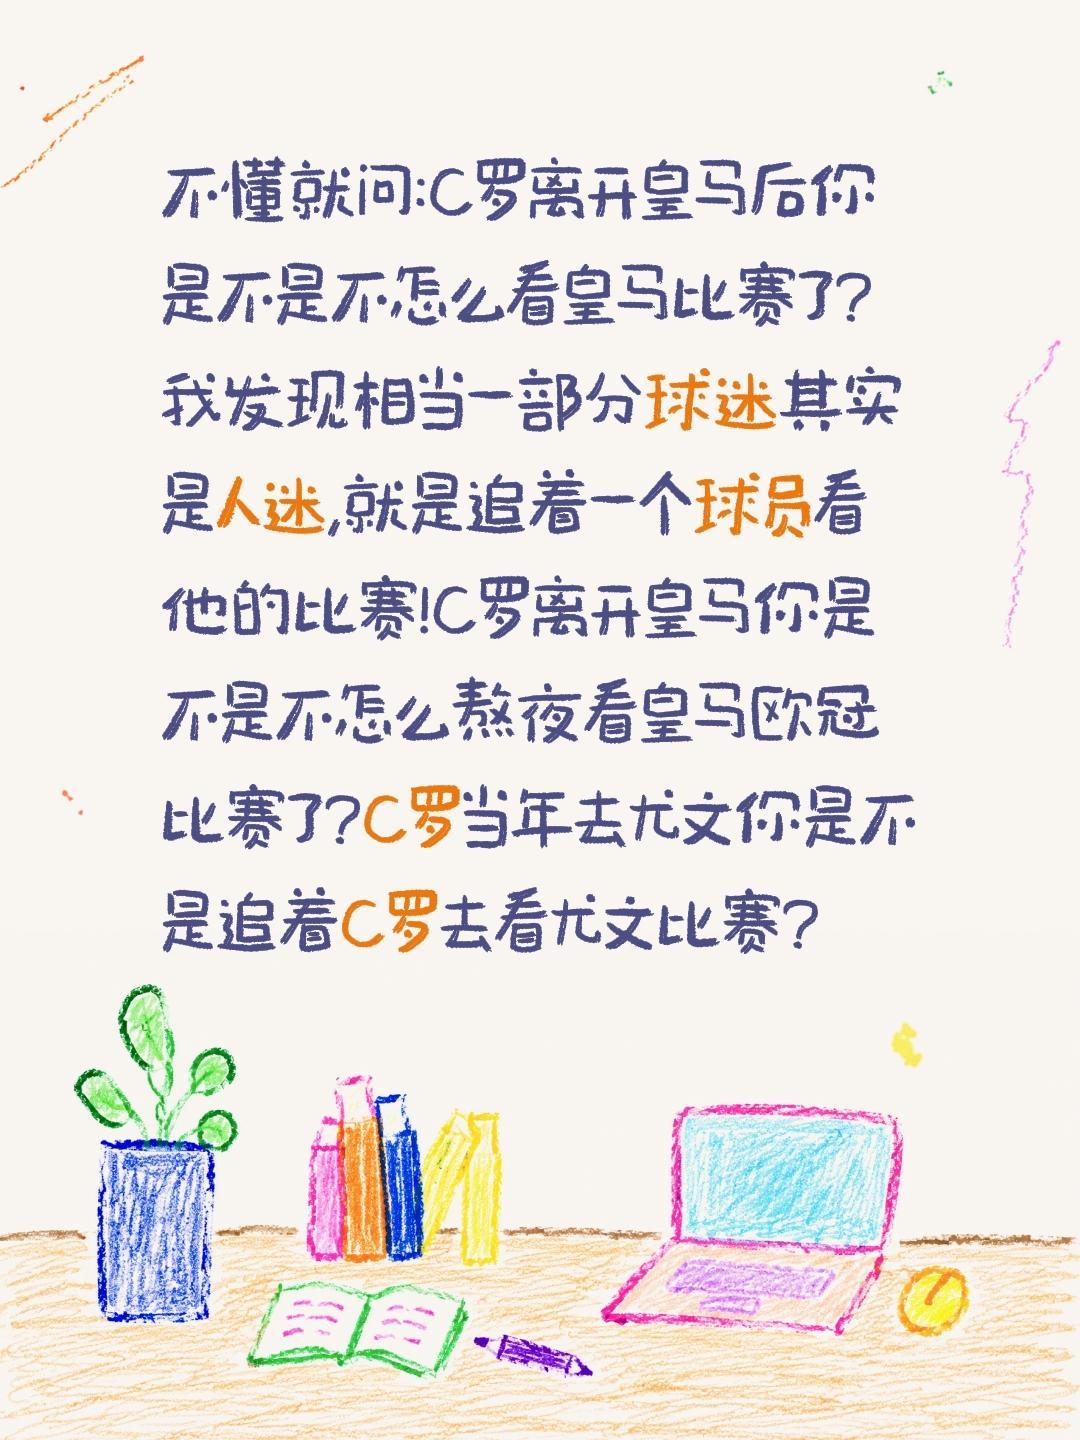 不懂就问:C罗离开皇马后你
是不是不怎么看皇马比赛了?
我发现相当一部分球迷其实
是人迷,就是追着一个球员看
他的比赛!C罗离开皇马你是
不是不怎么熬夜看皇马欧冠
比赛了?C罗当年去尤文你是不
是追着C罗去看尤文比赛?